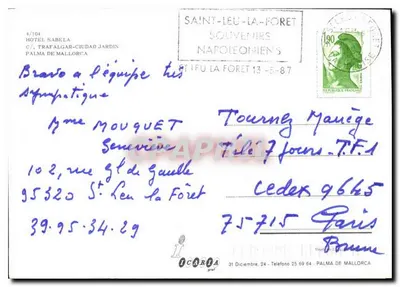 4/104
HOTEL NABILA
C/. TRAFALGAR-CIUDAD JARDIN
PALMA DE MALLORCA
SAINT-LEU-LA-FORET
SOUVENIRS
NAPOLEONIENS
ST LEU LA FORET 13-3-87
1,90
Bravo a l'équipe très
sympatique
Mme MOUQUET
Geneviève
102, rue Gl de Gaulle
95320 St Leu la Fôret
39.95.34.29
Tournez Manège
Télé 7 Jours - T.F.1
Cedex 9645
75715 Paris
Brune
ICARIA
31 Diciembre, 24 - Teléfono 25 69 64 - PALMA DE MALLORCA